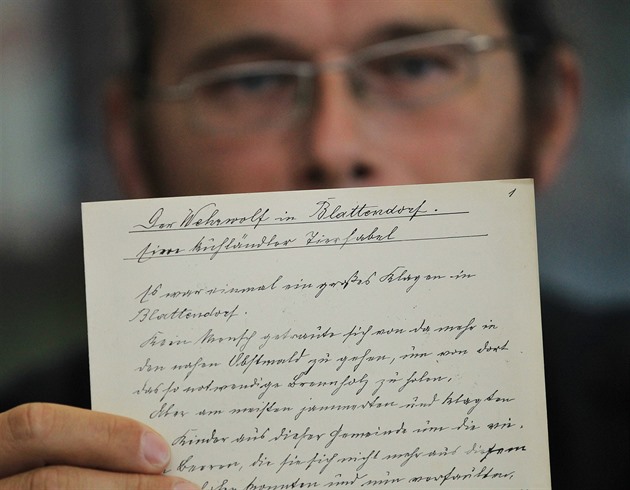 1
Der Wehrwolf in Blattendorf.
Eine Kuhländler Tierfabel
Es war einmal ein großes Klagen in
Blattendorf.
Kein Mensch getraute sich von da mehr in
den nahen Obstwald zu gehen, um von dort
das so notwendige Brennholz zu holen.
Aber am meisten jammerten und klagten
Kinder aus dieser Gemeinde um die vie-
Beeren, die sie sich nicht mehr aus diesem
holen konnten und nun verfaulten,